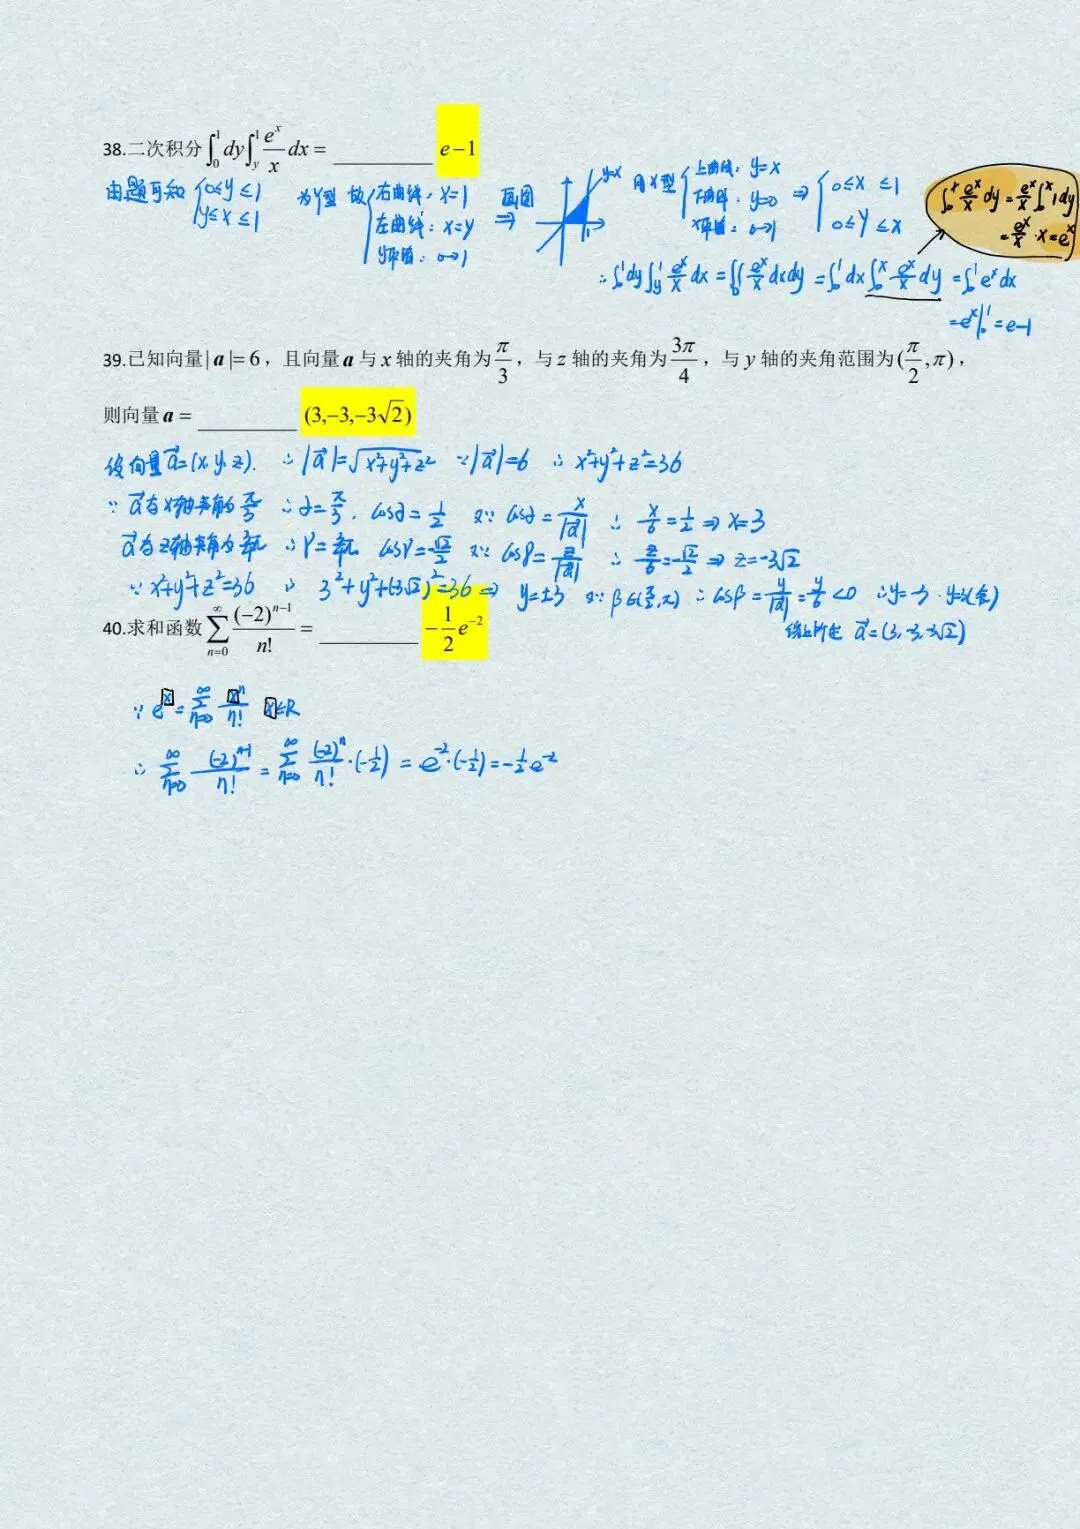 38.二次积分∫₀¹dy∫_y¹ e^x/x dx = ________ e−1
由题可知 {0≤y≤1 y≤x≤1 为Y型 故 {右曲线：x=1 左曲线：x=y y取值：0→1 画图⇒ y=x 1 用X型 {上曲线：y=x 下曲线：y=0 x取值：0→1 ⇒ {0≤x≤1 0≤y≤x
∫₀^x e^x/x dy = e^x/x ∫₀^x 1dy
= e^x/x · x = e^x
∴∫₀¹dy∫_y¹ e^x/x dx = ∬_D e^x/x dxdy = ∫₀¹dx∫₀^x e^x/x dy = ∫₀¹e^x dx
= e^x|₀¹ = e−1
39.已知向量|a|=6，且向量a与x轴的夹角为π/3，与z轴的夹角为3π/4，与y轴的夹角范围为(π/2,π)，
则向量a= ________ (3,−3,−3√2)
设向量a⃗=(x,y,z). ∴|a⃗|=√(x²+y²+z²) ∵|a⃗|=6 ∴x²+y²+z²=36
∵a⃗与x轴夹角为π/3 ∴α=π/3. cosα=1/2 又∵cosα=x/|a⃗| ∴x/6=1/2⇒x=3
a⃗与z轴夹角为3/4π ∴γ=3/4π cosγ=−√2/2 又∵cosγ=z/|a⃗| ∴z/6=−√2/2⇒z=−3√2
∵x²+y²+z²=36 ∴3²+y²+(−3√2)²=36⇒y=±3 又∵β∈(π/2,π) ∴cosβ=y/|a⃗|=y/6<0 ∴y=−3，y=3(舍)
综上所述 a⃗=(3,−3,−3√2)
40.求和函数∑_{n=0}^∞ (−2)^{n−1}/n! = ________ −1/2 e^{−2}
∵e^x=∑_{n=0}^∞ x^n/n! x∈R
∴∑_{n=0}^∞ (−2)^{n−1}/n! = ∑_{n=0}^∞ (−2)^n/n!·(−1/2) = e^{−2}·(−1/2) = −1/2 e^{−2}